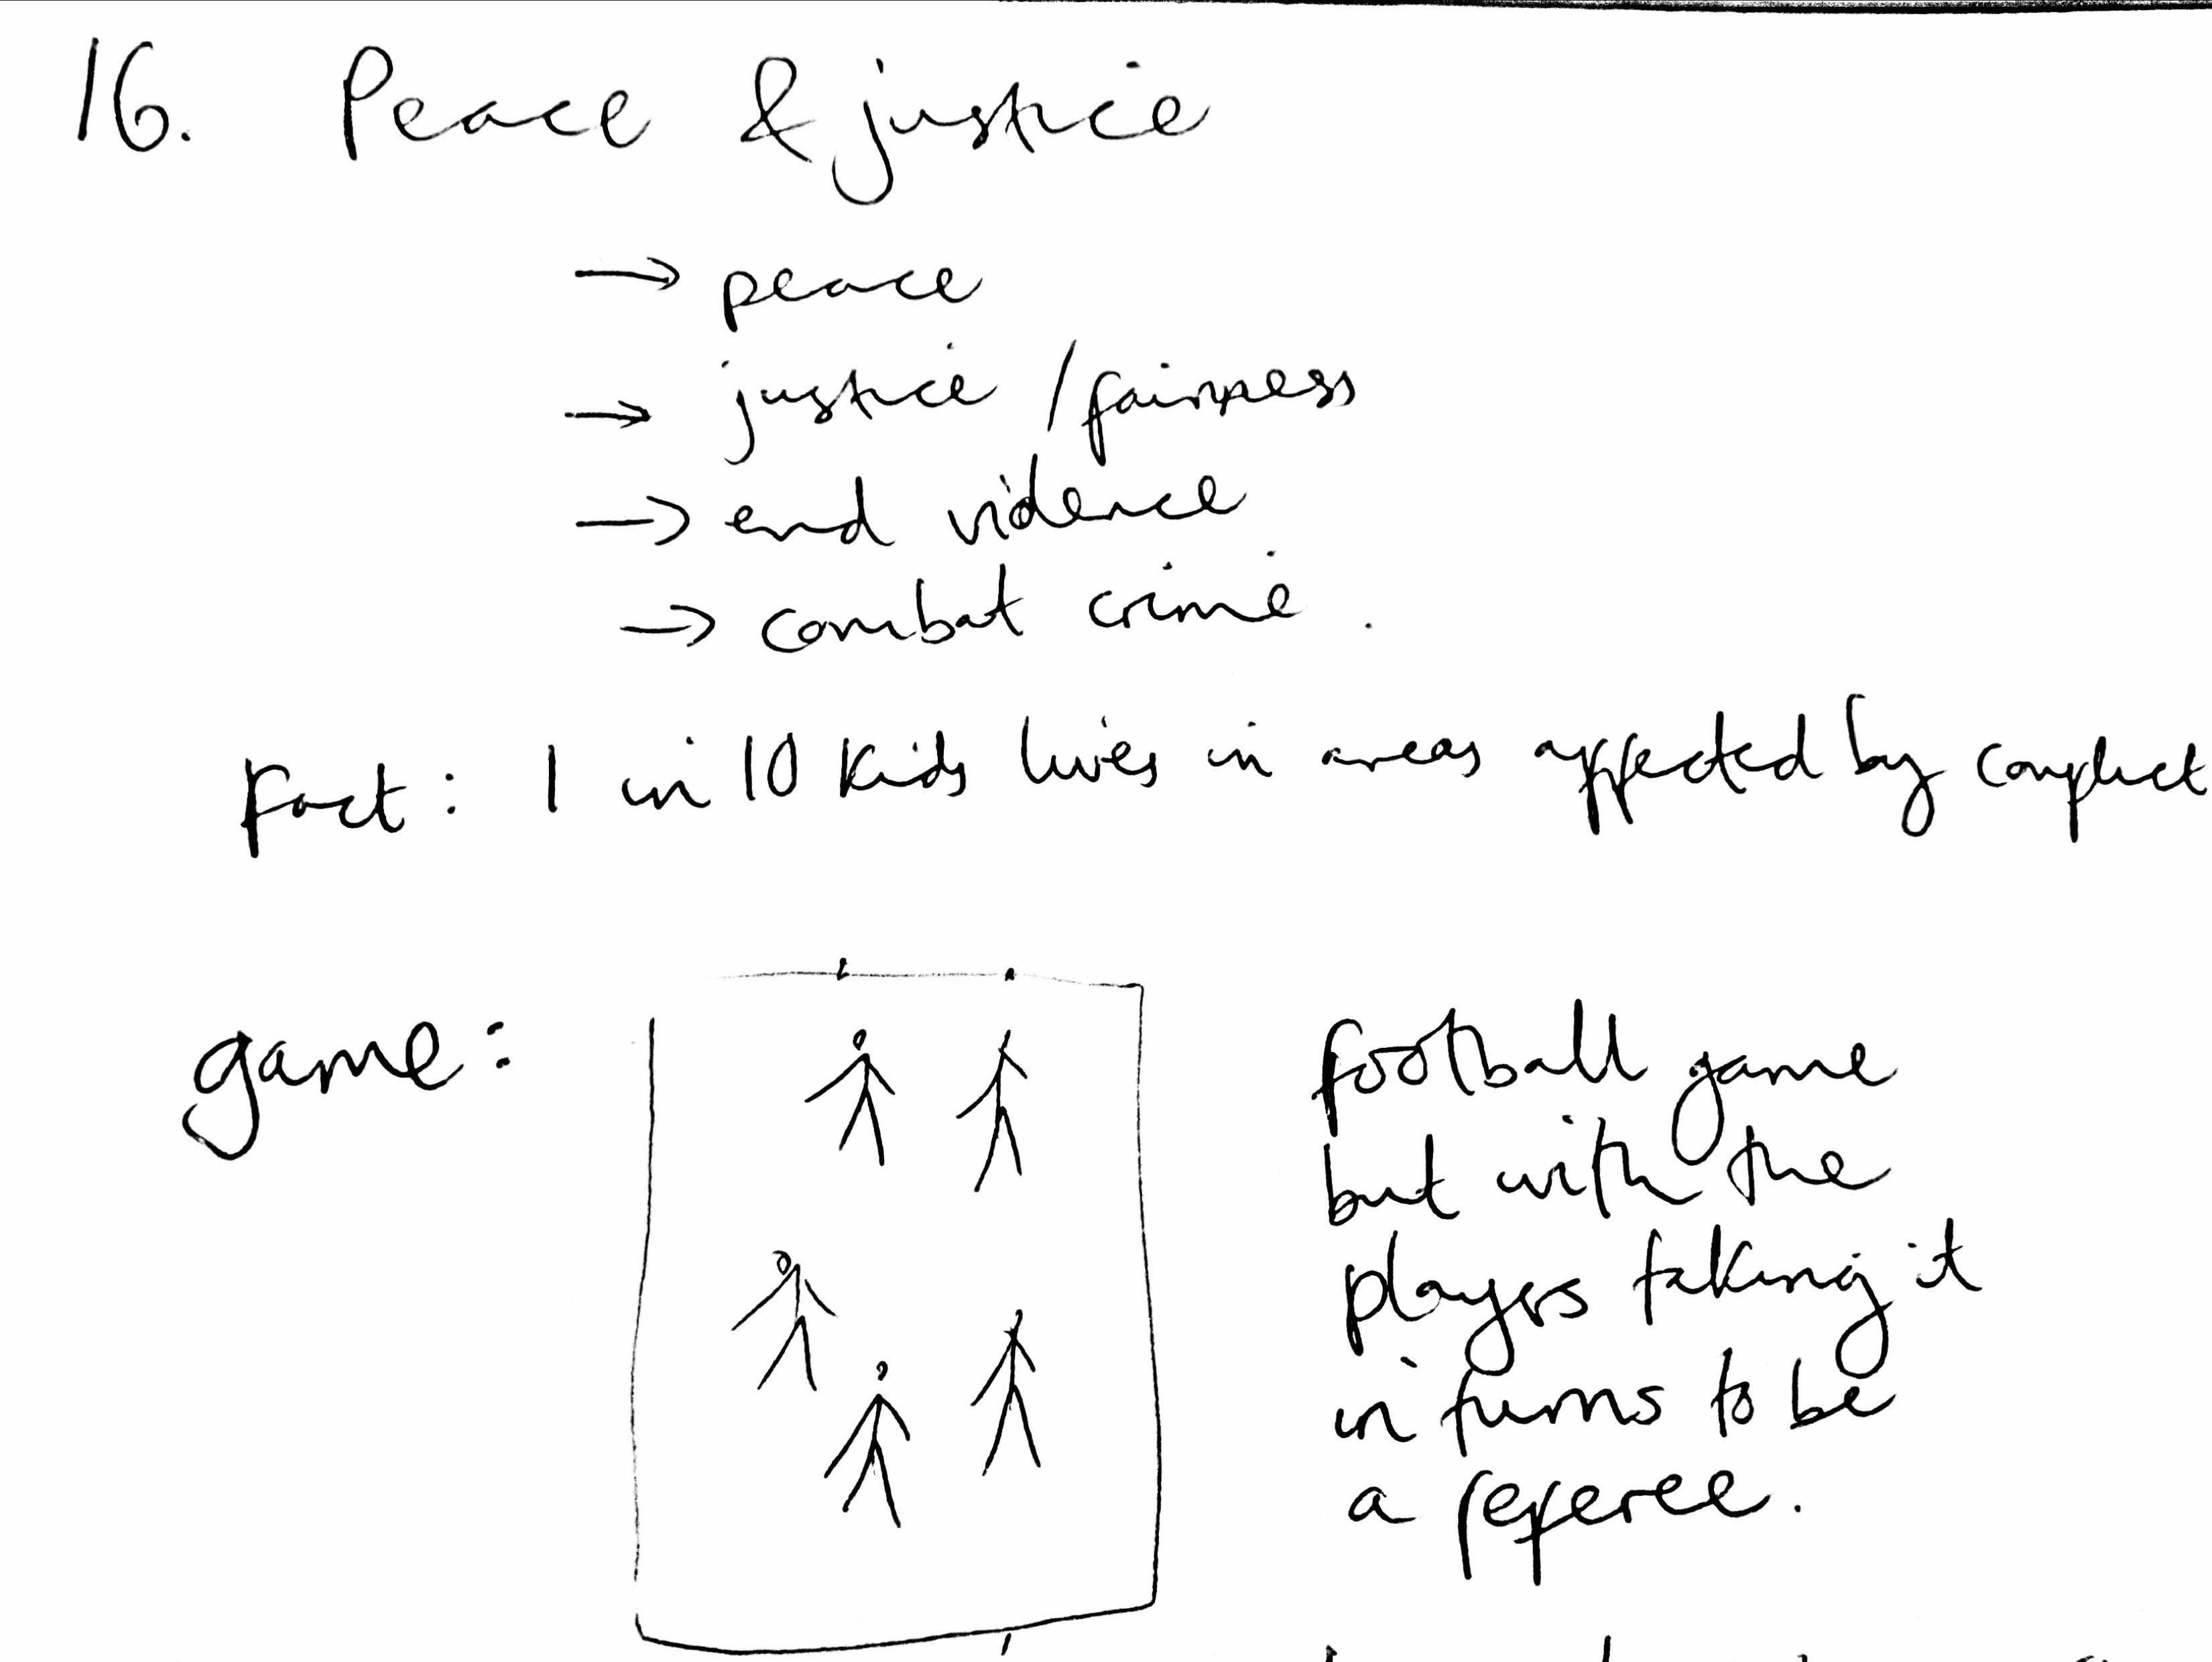 16. Peace & justice
→ peace
→ justice / fairness
→ end violence
→ combat crime.
Fact: 1 in 10 kids lives in areas affected by conflict
game:
football game
but with the
players taking it
in turns to be
a referee.